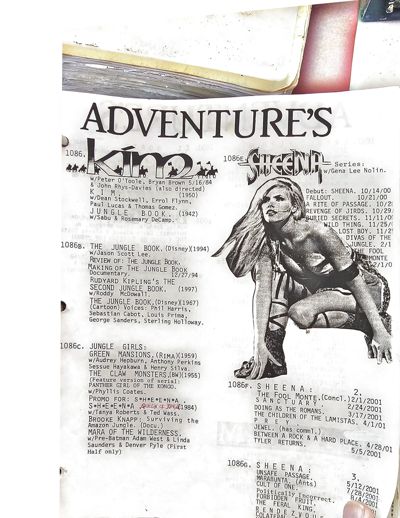 ADVENTURE'S
1086.
kim
w/Peter O'Toole, Bryan Brown 5/16/84
& John Rhys-Davies (also directed)
K I M. (1950)
w/Dean Stockwell, Errol Flynn,
Paul Lucas & Thomas Gomez.
J U N G L E  B O O K. (1942)
w/Sabu & Rosemary DeCamp.
1086B. THE JUNGLE BOOK.(Disney)(1994)
w/Jason Scott Lee.
REVIEW OF: THE JUNGLE BOOK.
MAKING OF THE JUNGLE BOOK
Documentary. 12/27/94
RUDYARD KIPLING'S THE
SECOND JUNGLE BOOK. (1997)
w/Roddy McDowall.
THE JUNGLE BOOK.(Disney)(1967)
(Cartoon) Voices: Phil Harris,
Sebastian Cabot, Louis Prima,
George Sanders, Sterling Holloway.
1086C. JUNGLE GIRLS:
GREEN MANSIONS.(RIMA)(1959)
w/Audrey Hepburn, Anthony Perkins
Sessue Hayakawa & Henry Silva.
THE CLAW MONSTERS.(BW)(1955)
(Feature version of serial)
PANTHER GIRL OF THE KONGO.
w/Phyllis Coates.
PROMO FOR: S*H*E*E*N*A
S*H*E*E*N*A (1984)
w/Tanya Roberts & Ted Wass.
BROOKE KNAPP: Surviving the
Amazon Jungle. (Docu.)
MARA OF THE WILDERNESS.
w/Pre-Batman Adam West & Linda
Saunders & Denver Pyle (First
Half only)
1086E
SHEENA
Series:
w/Gena Lee Nolin.
Debut: SHEENA. 10/14/00
FALLOUT. 10/21/00
A RITE OF PASSAGE. 10/28
REVENGE OF JIRDS. 10/29
BURIED SECRETS. 11/
WILD THING. 11/25/
LOST BOY. 11/2
DIVAS OF THE
JUNGLE. 2/1
THE FOOL
MONTE
2/1/0
1086F. S H E E N A : 2.
THE FOOL MONTE.(Concl.)2/1/2001
S A N C T U A R Y 2/17/2001
DOING AS THE ROMANS. 2/24/2001
THE CHILDREN OF THE LAMISTAS. 3/17/2001
JEWEL. (hass comml.) 4/1/01
BETWEEN A ROCK & A HARD PLACE. 4/28/01
TYLER RETURNS. 5/5/2001
1086G. S H E E N A : 3.
UNSAFE PASSAGE.
MARABUNTA. (Ants) 5/12/2001
CULT OF ONE. 7/28/2001
Politically Incorrect.
FORBIDDEN FRUIT. 8/4/2001
THE FERAL KING.
RENDEZVOUS